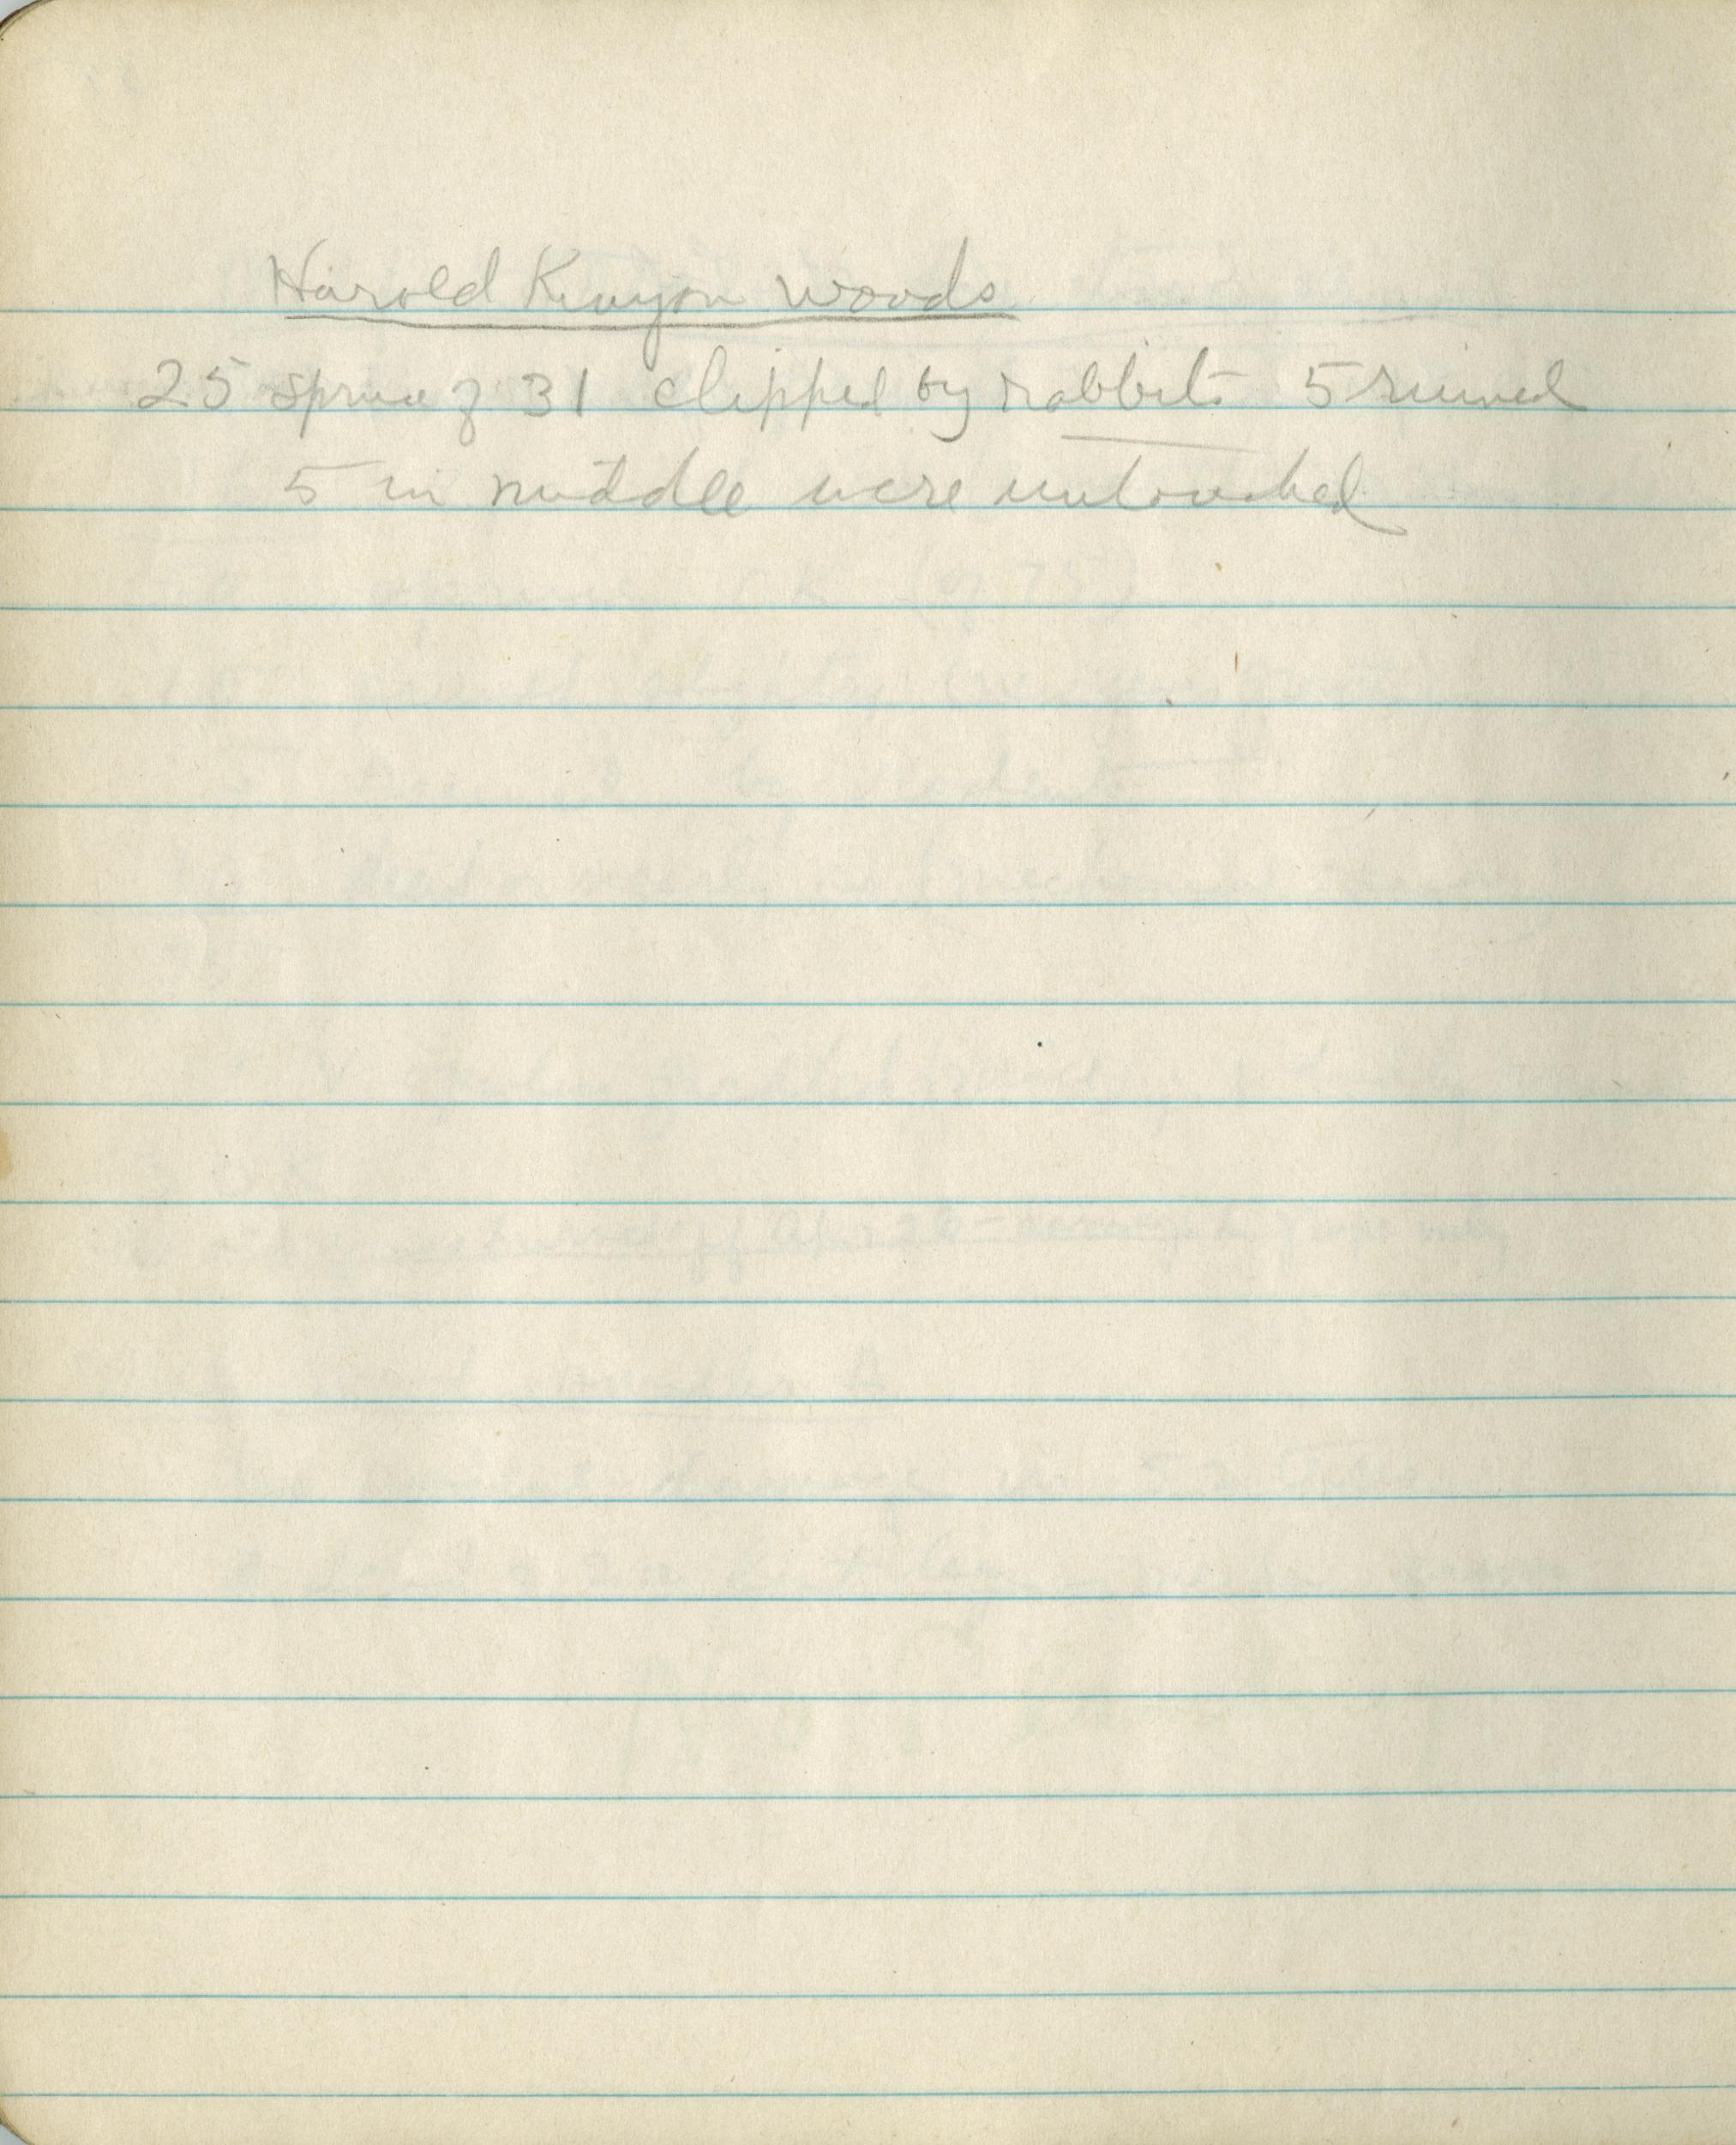 Harold Kenyon Woods
25 spruce of 31 clipped by rabbits 5 ruined
5 in middle were untouched